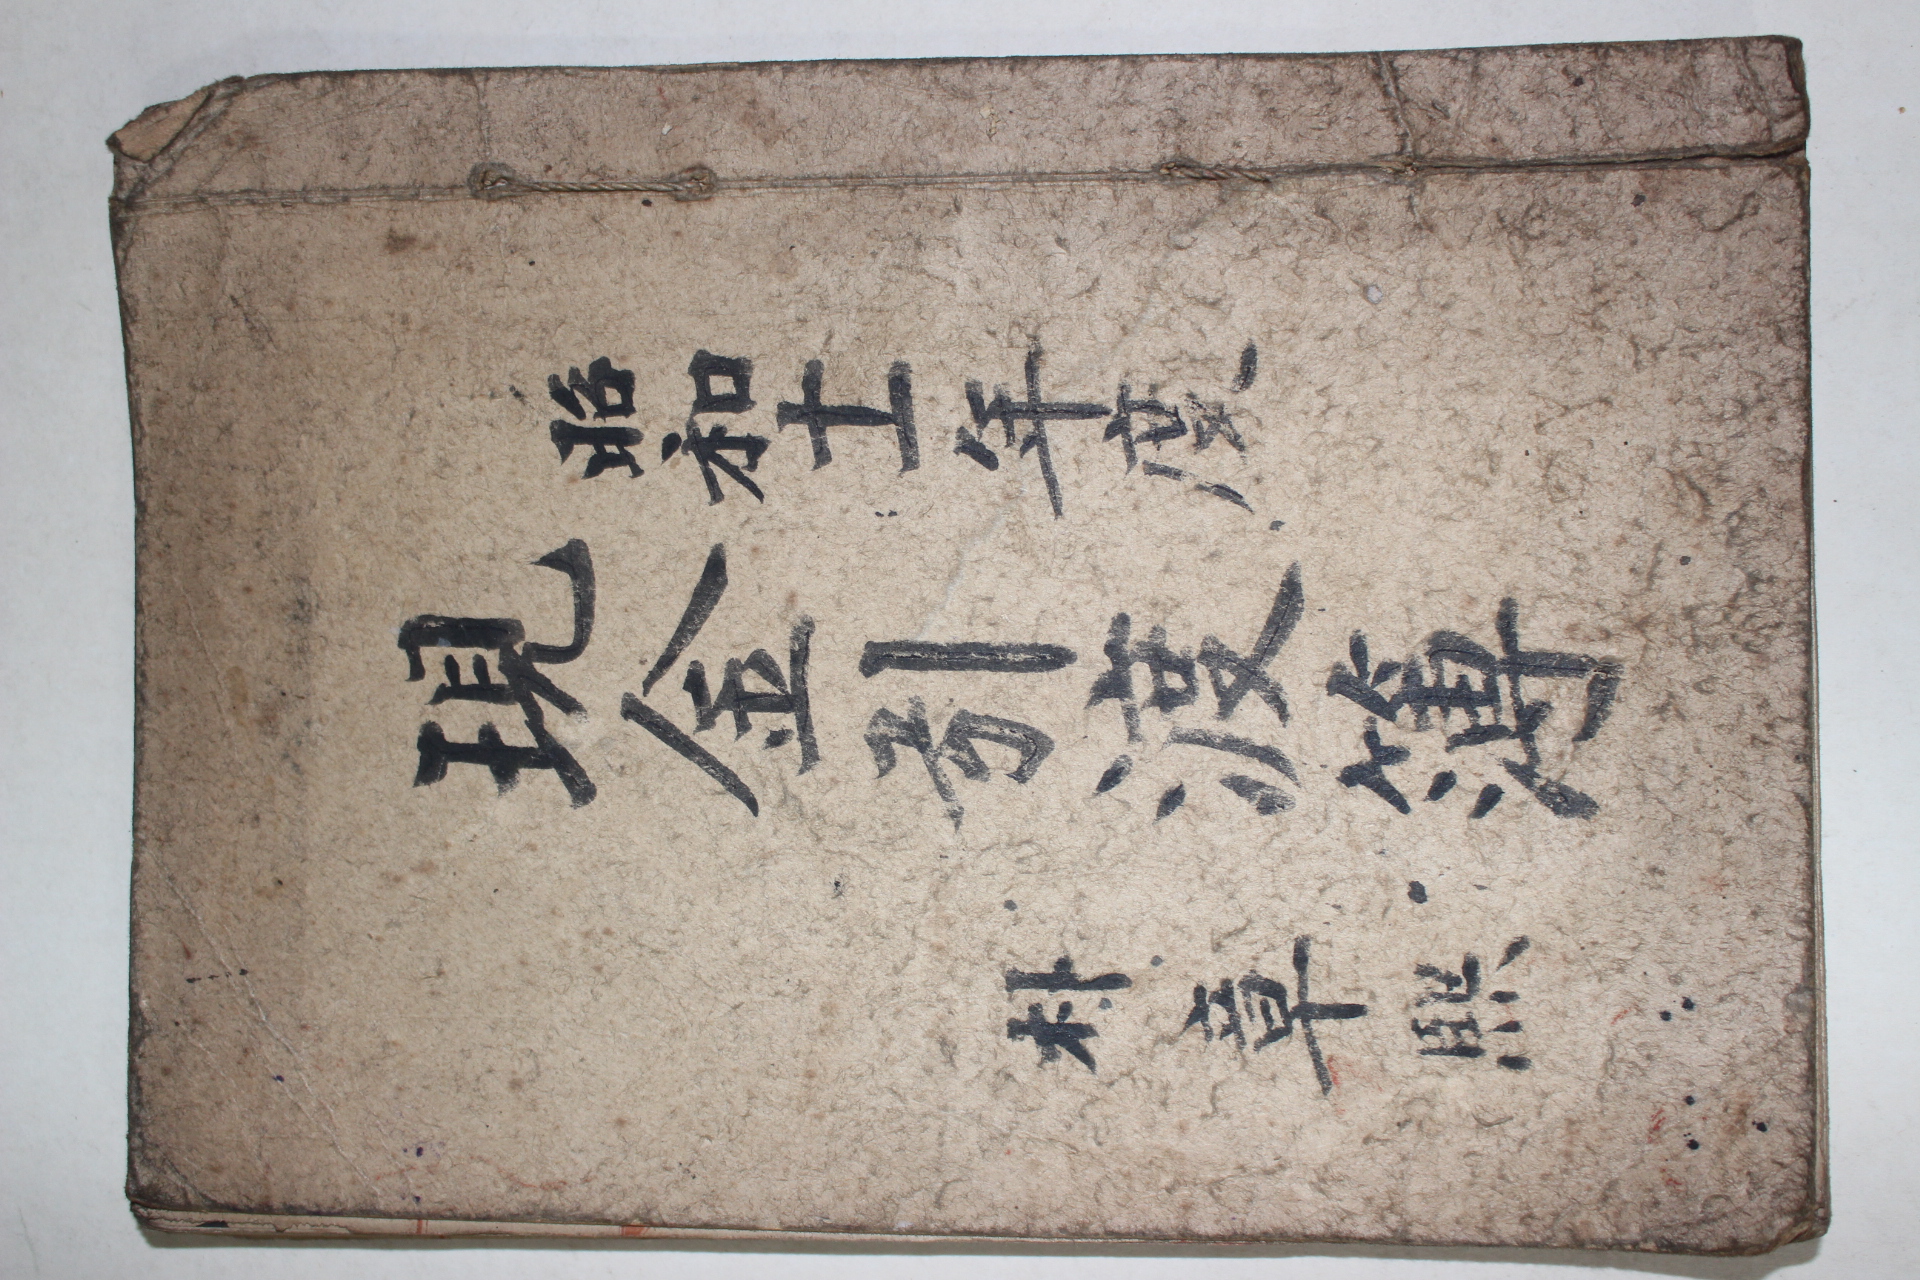 昭和十一年度
現金引渡簿
朴章熙